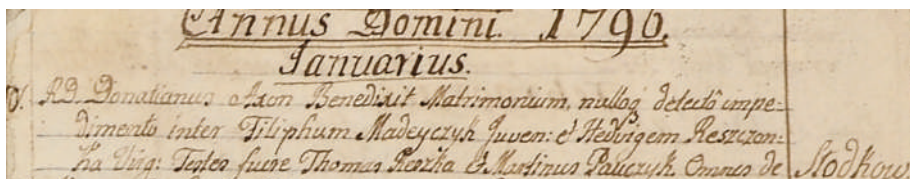 Annus Domini. 1796.
Januarius.
AD Donatianus Axon Benedixit Matrimonium, nulloq detectô impe-
dimento inter Filiphum Madeyczyk Juven: et Hedvigem Reszczon-
ka Virg: Testes fuere Thomas Reszka et Martinus Pawczyk Omnes de Slodkow